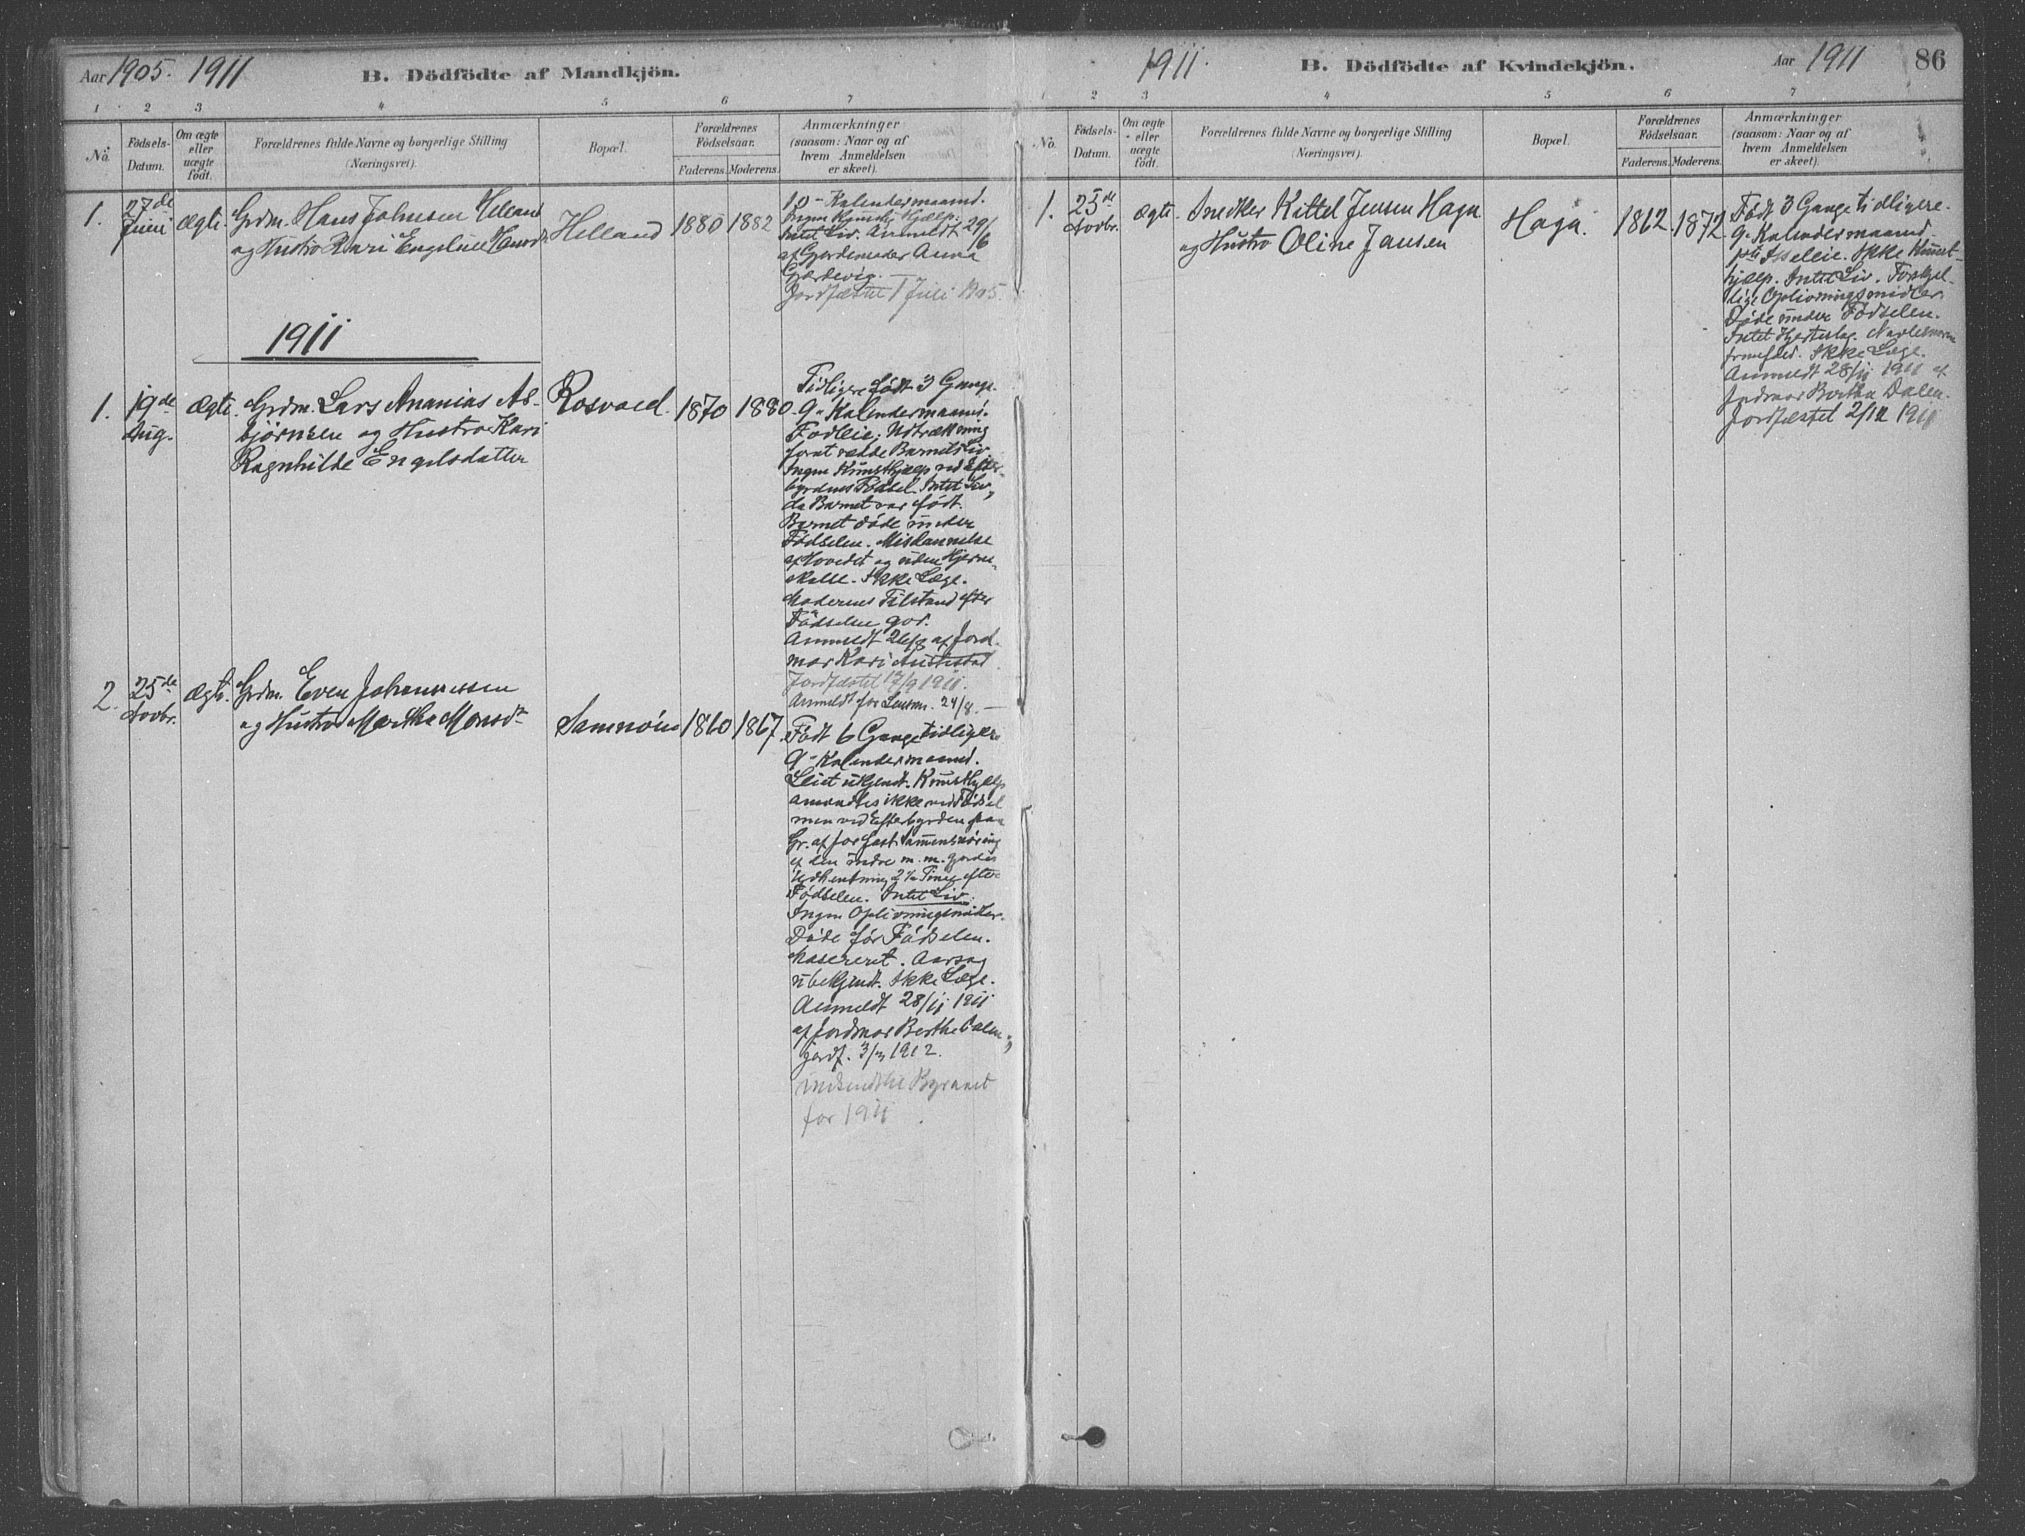 Aar 1905. 1911 B. Dödfödte af Mandkjön.
1 2 3 4 5 6 7
No. Födsels-Datum. Om ægte eller uægte födt. Forældrenes fulde Navne og borgerlige Stilling (Næringsvei). Bopæl. Forældrenes Födselsaar. Faderens. Moderens. Anmærkninger (saasom: Naar og af hvem Anmeldelsen er skeet).
1. 27de Juni ægte. Grdm. Hans Johnsen Helland
og Hustro Kari
Helland 1880 1882
10 Kalendermaaned.
Ingen Kunstig Hjælp.
Intet Liv. Anmeldt 29/6
af Gjordemoder Anna
Jordfæstet 1 Juli 1905.
1911
1. 19de Aug. Ægte. Grdm. Lars Ananias As-
bjørnsen og Hustro Kari
Ragnhilde Engelsdatter
Rosvold. 1870 1880
Tidligere født 3 Gange.
9 Kalendermaaned.
Fodleie; Udtrækning
forat redde Barnets Liv
Ingen Kunsthjælp ved Efter-
byrdens Fødsel. Intet Liv,
da Barnet var født.
Barnet døde under
Fødselen. Misdannelse
af Hovedet og uden Hjerne-
skalle. Ikke Læge.
Moderens Tilstand efter
Fødselen god.
Anmeldt 26/8 af Jord-
mor Kari
Jordfæstet 17/9 1911.
Anmeldt for Lensm. 24/8.
2. 25de Novbr. Ægte. Grdm. Even Johannessen
og Hustro Martha Monsdt
Samnøen 1860 1867
Født 6 Gange tidligere
9 Kalendermaaned.
Leiet ukjendt. Kunsthjælp
anvendtes ikke ved Fødsel
men ved Efterbyrden paa
Gr. af for fast Sammensnøring
af den indre m. m. gjordes
Udhentning 2 1/2 Time efter
Fødselen. Intet Liv.
Ingen Oplivningsmidler.
Døde før Fødselen.
Masereret. Aarsag
ubekjendt. Ikke Læge.
Anmeldt 28/11 1911
af Jordmor Berthe Dalen;
jordf. 3/3 1912.
indsendt til Byraaet
for 1911
1911. B. Dödfödte af Kvindekjön. Aar 1911 86
1 2 3 4 5 6 7
No. Födsels-Datum. Om ægte eller uægte födt. Forældrenes fulde Navne og borgerlige Stilling (Næringsvei). Bopæl. Forældrenes Födselsaar. Faderens. Moderens. Anmærkninger (saasom: Naar og af hvem Anmeldelsen er skeet).
1. 25de Novbr. Ægte. Snedker Kittel Jensen Haga
og Hustro Oline Jansen
Haga. 1862. 1872
Født 3 Gange tidligere.
9 Kalendermaaned.
Isseleie. Ikke Kunst-
hjælp. Intet Liv. Forskjel-
lige Oplivningsmidler.
Døde under Fødselen.
Intet Hjerteslag. Navlesnoren
fremfaldt. Ikke Læge.
Anmeldt 28/11 1911 af
Jordmor Bertha Dalen.
Jordfæstet 2/12 1911